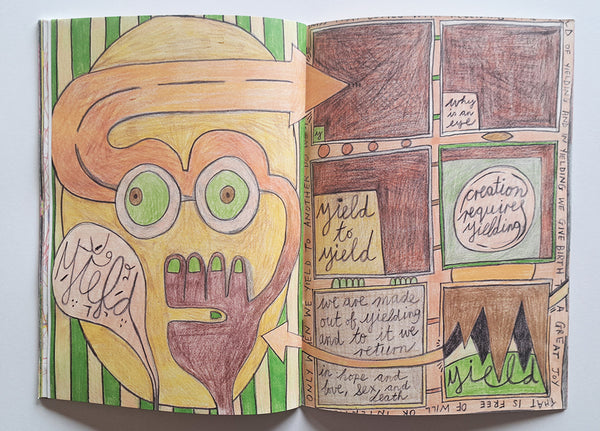 yield
y
why
is an
eye
yield
to
yield
creation
requires
yielding
we are made
out of yielding
and to it we
return
in hope and
love, sex, and
death
yield
ONLY WHEN WE YIELD TO ANOTHER
OF YIELDING AND IN YIELDING WE GIVE BIRTH
A GREAT JOY
THAT IS FREE OF WILL OR